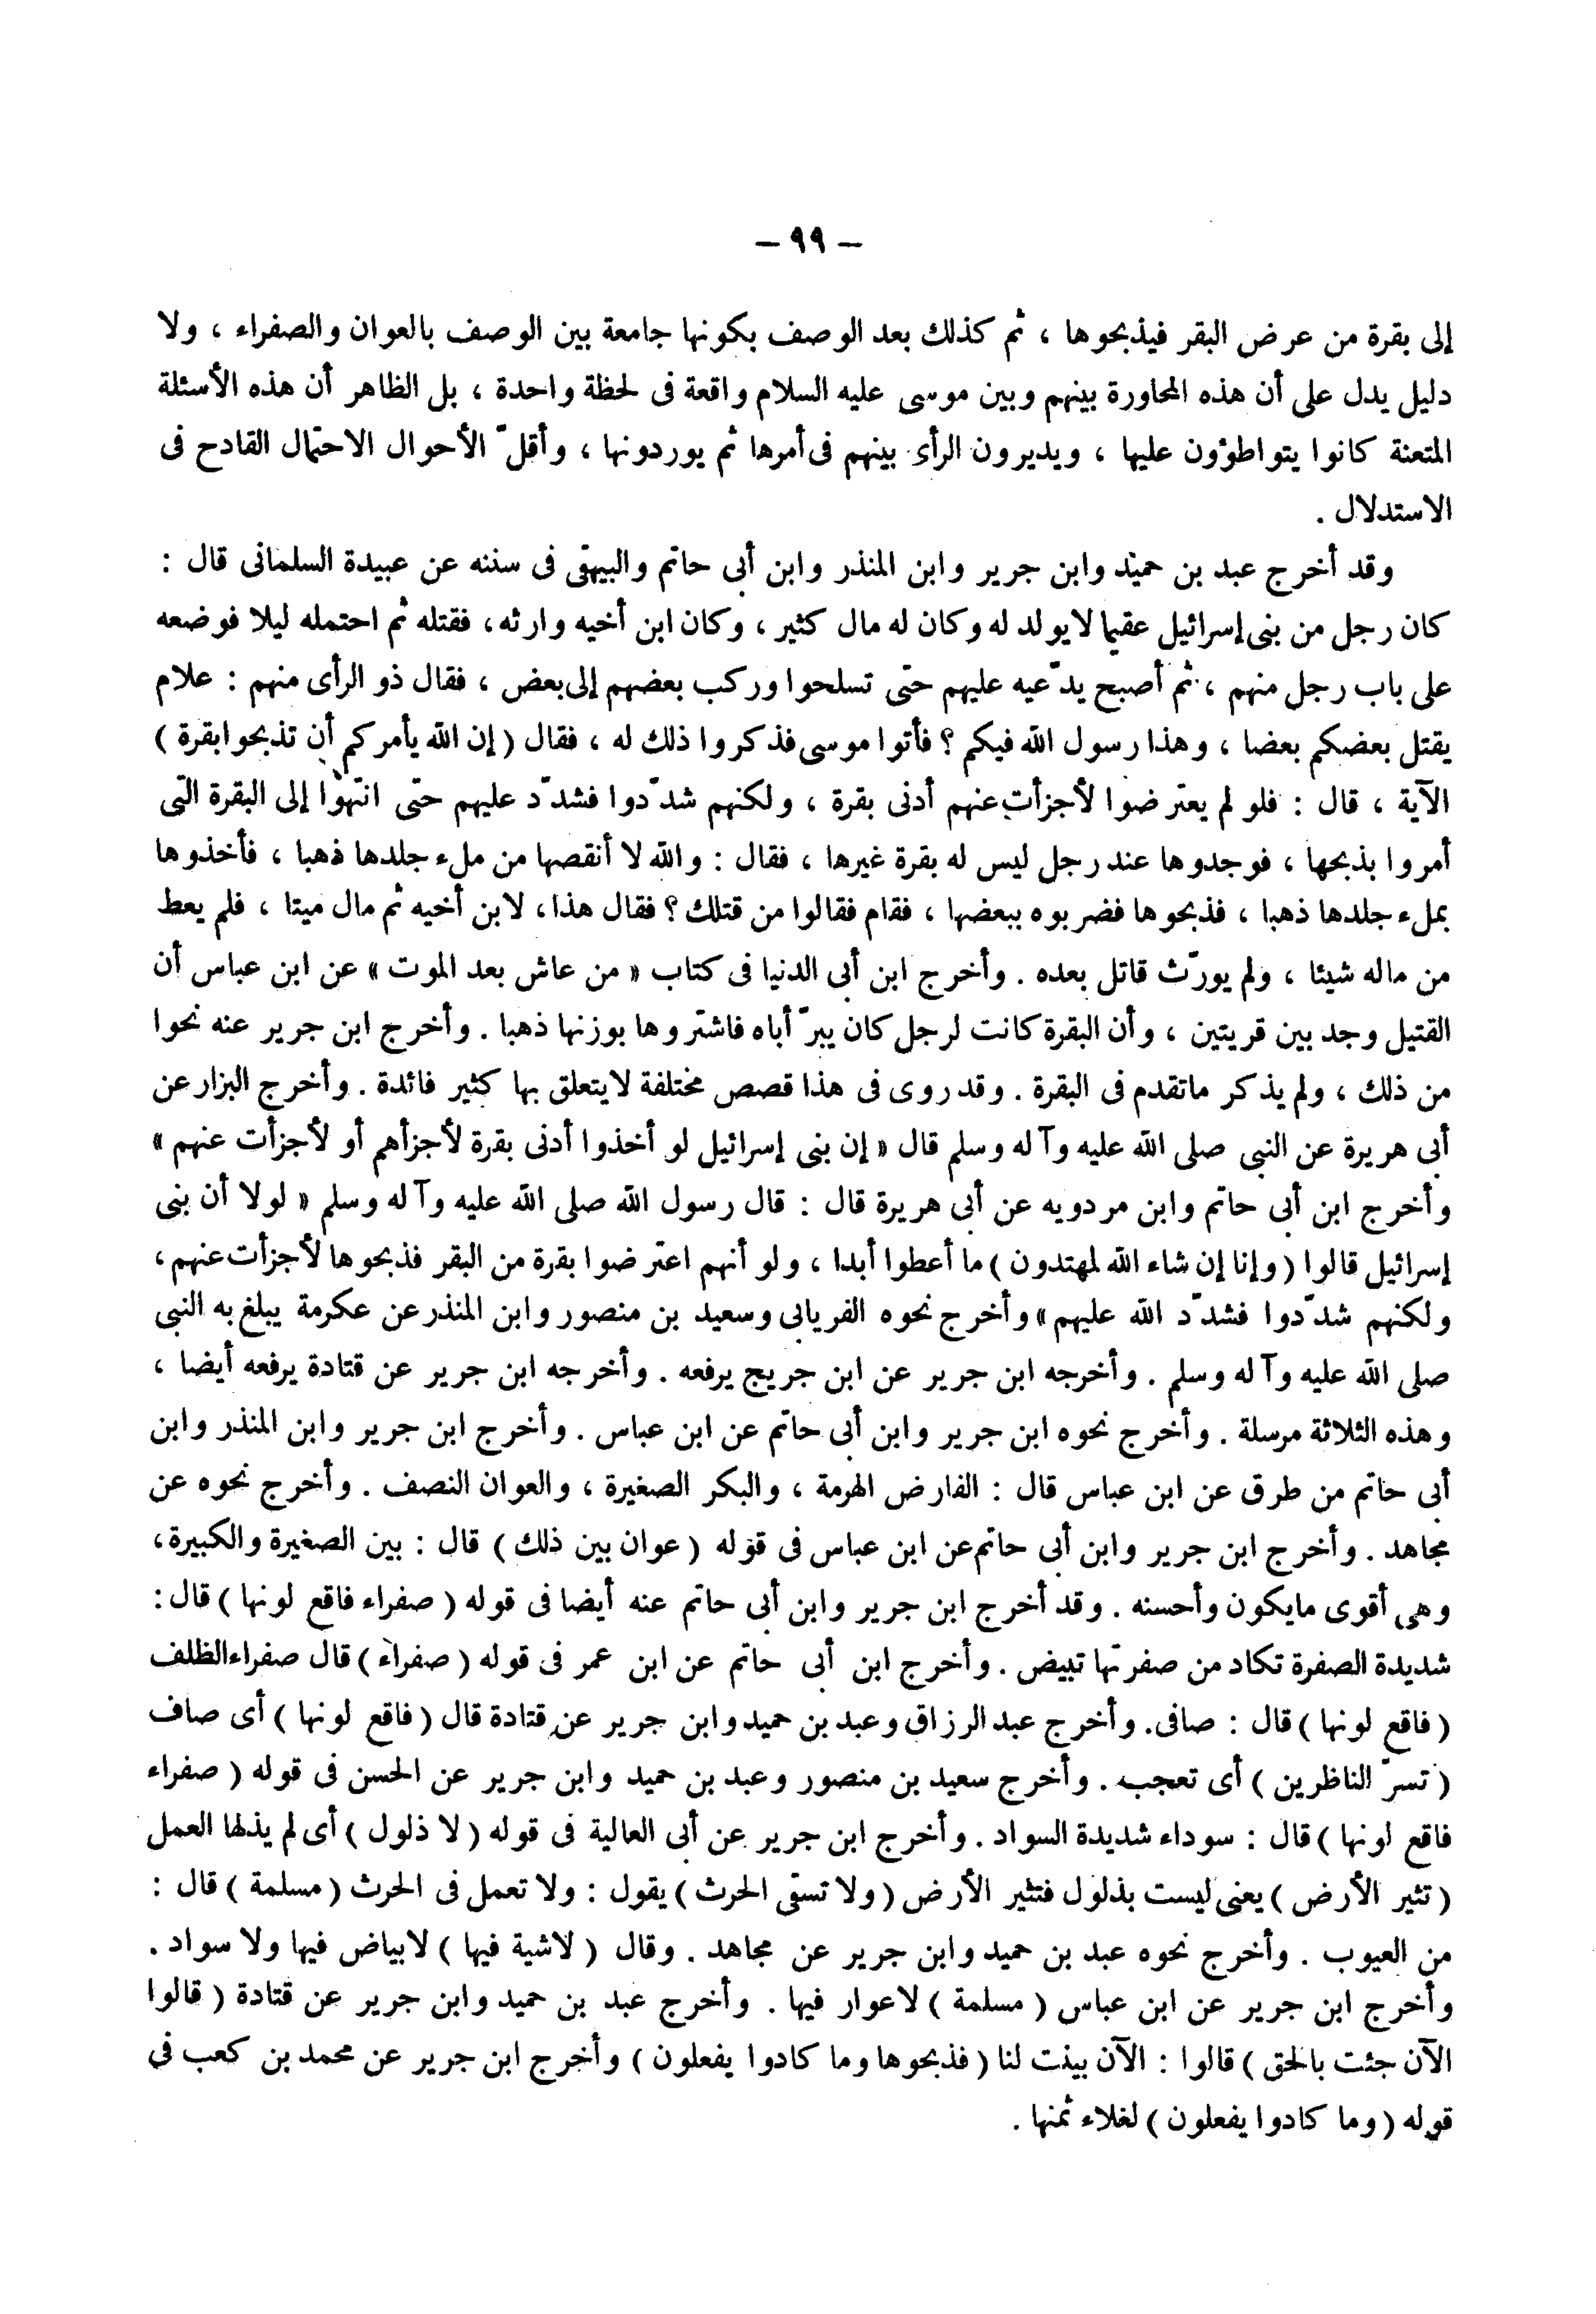 – ٩٩ –
إلى بقرة من عرض البقر فيذبحوها ، ثم كذلك بعد الوصف بكونها جامعة بين الوصف بالعوان والصفراء ، ولا
دليل يدل على أن هذه المحاورة بينهم وبين موسى عليه السلام واقعة فى لحظة واحدة ، بل الظاهر أن هذه الأسئلة
المتعنتة كانوا يتواطؤون عليها ، ويديرون الرأى بينهم فى أمرها ثم يوردونها ، وأقلّ الأحوال الاحتمال القادح فى
الاستدلال .
وقد أخرج عبد بن حميد وابن جرير وابن المنذر وابن أبى حاتم والبيهقى فى سننه عن عبيدة السلمانى قال :
كان رجل من بنى إسرائيل عقيما لا يولد له وكان له مال كثير ، وكان ابن أخيه وارثه، فقتله ثم احتمله ليلا فوضعه
على باب رجل منهم ، ثم أصبح يدّعيه عليهم حتى تسلحوا وركب بعضهم إلى بعض ، فقال ذو الرأى منهم : علام
يقتل بعضكم بعضا ، وهذا رسول الله فيكم ؟ فأتوا موسى فذكروا ذلك له ، فقال ( إن الله يأمركم أن تذبحوا بقرة )
الآية ، قال : فلو لم يعترضوا لأجزأت عنهم أدنى بقرة ، ولكنهم شدّدوا فشدّد عليهم حتى انتهوا إلى البقرة التى
أمروا بذبحها ، فوجدوها عند رجل ليس له بقرة غيرها ، فقال : والله لا أنقصها من ملء جلدها ذهبا ، فأخذوها
بملء جلدها ذهبا ، فذبحوها فضربوه ببعضها ، فقام فقالوا من قتلك ؟ فقال هذا، لابن أخيه ثم مال ميتا ، فلم يعط
من ماله شيئا ، ولم يورّث قاتل بعده . وأخرج ابن أبى الدنيا فى كتاب « من عاش بعد الموت » عن ابن عباس أن
القتيل وجد بين قريتين ، وأن البقرة كانت لرجل كان يبرّ أباه فاشتروها بوزنها ذهبا . وأخرج ابن جرير عنه نحوا
من ذلك ، ولم يذكر ماتقدم فى البقرة . وقد روى فى هذا قصص مختلفة لايتعلق بها كثير فائدة . وأخرج البزار عن
أبى هريرة عن النبى صلى الله عليه وآله وسلم قال « إن بنى إسرائيل لو أخذوا أدنى بقرة لأجزأهم أو لأجزأت عنهم »
وأخرج ابن أبى حاتم وابن مردويه عن أبى هريرة قال : قال رسول الله صلى الله عليه وآله وسلم « لولا أن بنى
إسرائيل قالوا ( وإنا إن شاء الله لمهتدون ) ما أعطوا أبدا ، ولو أنهم اعترضوا بقرة من البقر فذبحوها لأجزأت عنهم ،
ولكنهم شدّدوا فشدّد الله عليهم » وأخرج نحوه الفريابى وسعيد بن منصور وابن المنذر عن عكرمة يبلغ به النبى
صلى الله عليه وآله وسلم . وأخرجه ابن جرير عن ابن جريج يرفعه . وأخرجه ابن جرير عن قتادة يرفعه أيضا ،
وهذه الثلاثة مرسلة . وأخرج نحوه ابن جرير وابن أبى حاتم عن ابن عباس . وأخرج ابن جرير وابن المنذر وابن
أبى حاتم من طرق عن ابن عباس قال : الفارض الهرمة ، والبكر الصغيرة ، والعوان النصف . وأخرج نحوه عن
مجاهد . وأخرج ابن جرير وابن أبى حاتم عن ابن عباس فى قوله ( عوان بين ذلك ) قال : بين الصغيرة والكبيرة ،
وهى أقوى مايكون وأحسنه . وقد أخرج ابن جرير وابن أبى حاتم عنه أيضا فى قوله ( صفراء فاقع لونها ) قال :
شديدة الصفرة تكاد من صفرتها تبيض . وأخرج ابن أبى حاتم عن ابن عمر فى قوله ( صفراء ) قال صفراء الظلف
( فاقع لونها ) قال : صافى. وأخرج عبد الرزاق وعبد بن حميد وابن جرير عن قتادة قال ( فاقع لونها ) أى صاف
( تسرّ الناظرين ) أى تعجب . وأخرج سعيد بن منصور وعبد بن حميد وابن جرير عن الحسن فى قوله ( صفراء
فاقع لونها ) قال : سوداء شديدة السواد . وأخرج ابن جرير عن أبى العالية فى قوله ( لا ذلول ) أى لم يذلها العمل
( تثير الأرض ) يعنى ليست بذلول فتثير الأرض ( ولا تسقى الحرث ) يقول : ولا تعمل فى الحرث ( مسلمة ) قال :
من العيوب . وأخرج نحوه عبد بن حميد وابن جرير عن مجاهد . وقال ( لاشية فيها ) لابياض فيها ولا سواد .
وأخرج ابن جرير عن ابن عباس ( مسلمة ) لاعوار فيها . وأخرج عبد بن حميد وابن جرير عن قتادة ( قالوا
الآن جئت بالحق ) قالوا : الآن بينت لنا ( فذبحوها وما كادوا يفعلون ) وأخرج ابن جرير عن محمد بن كعب فى
قوله ( وما كادوا يفعلون ) لغلاء ثمنها .